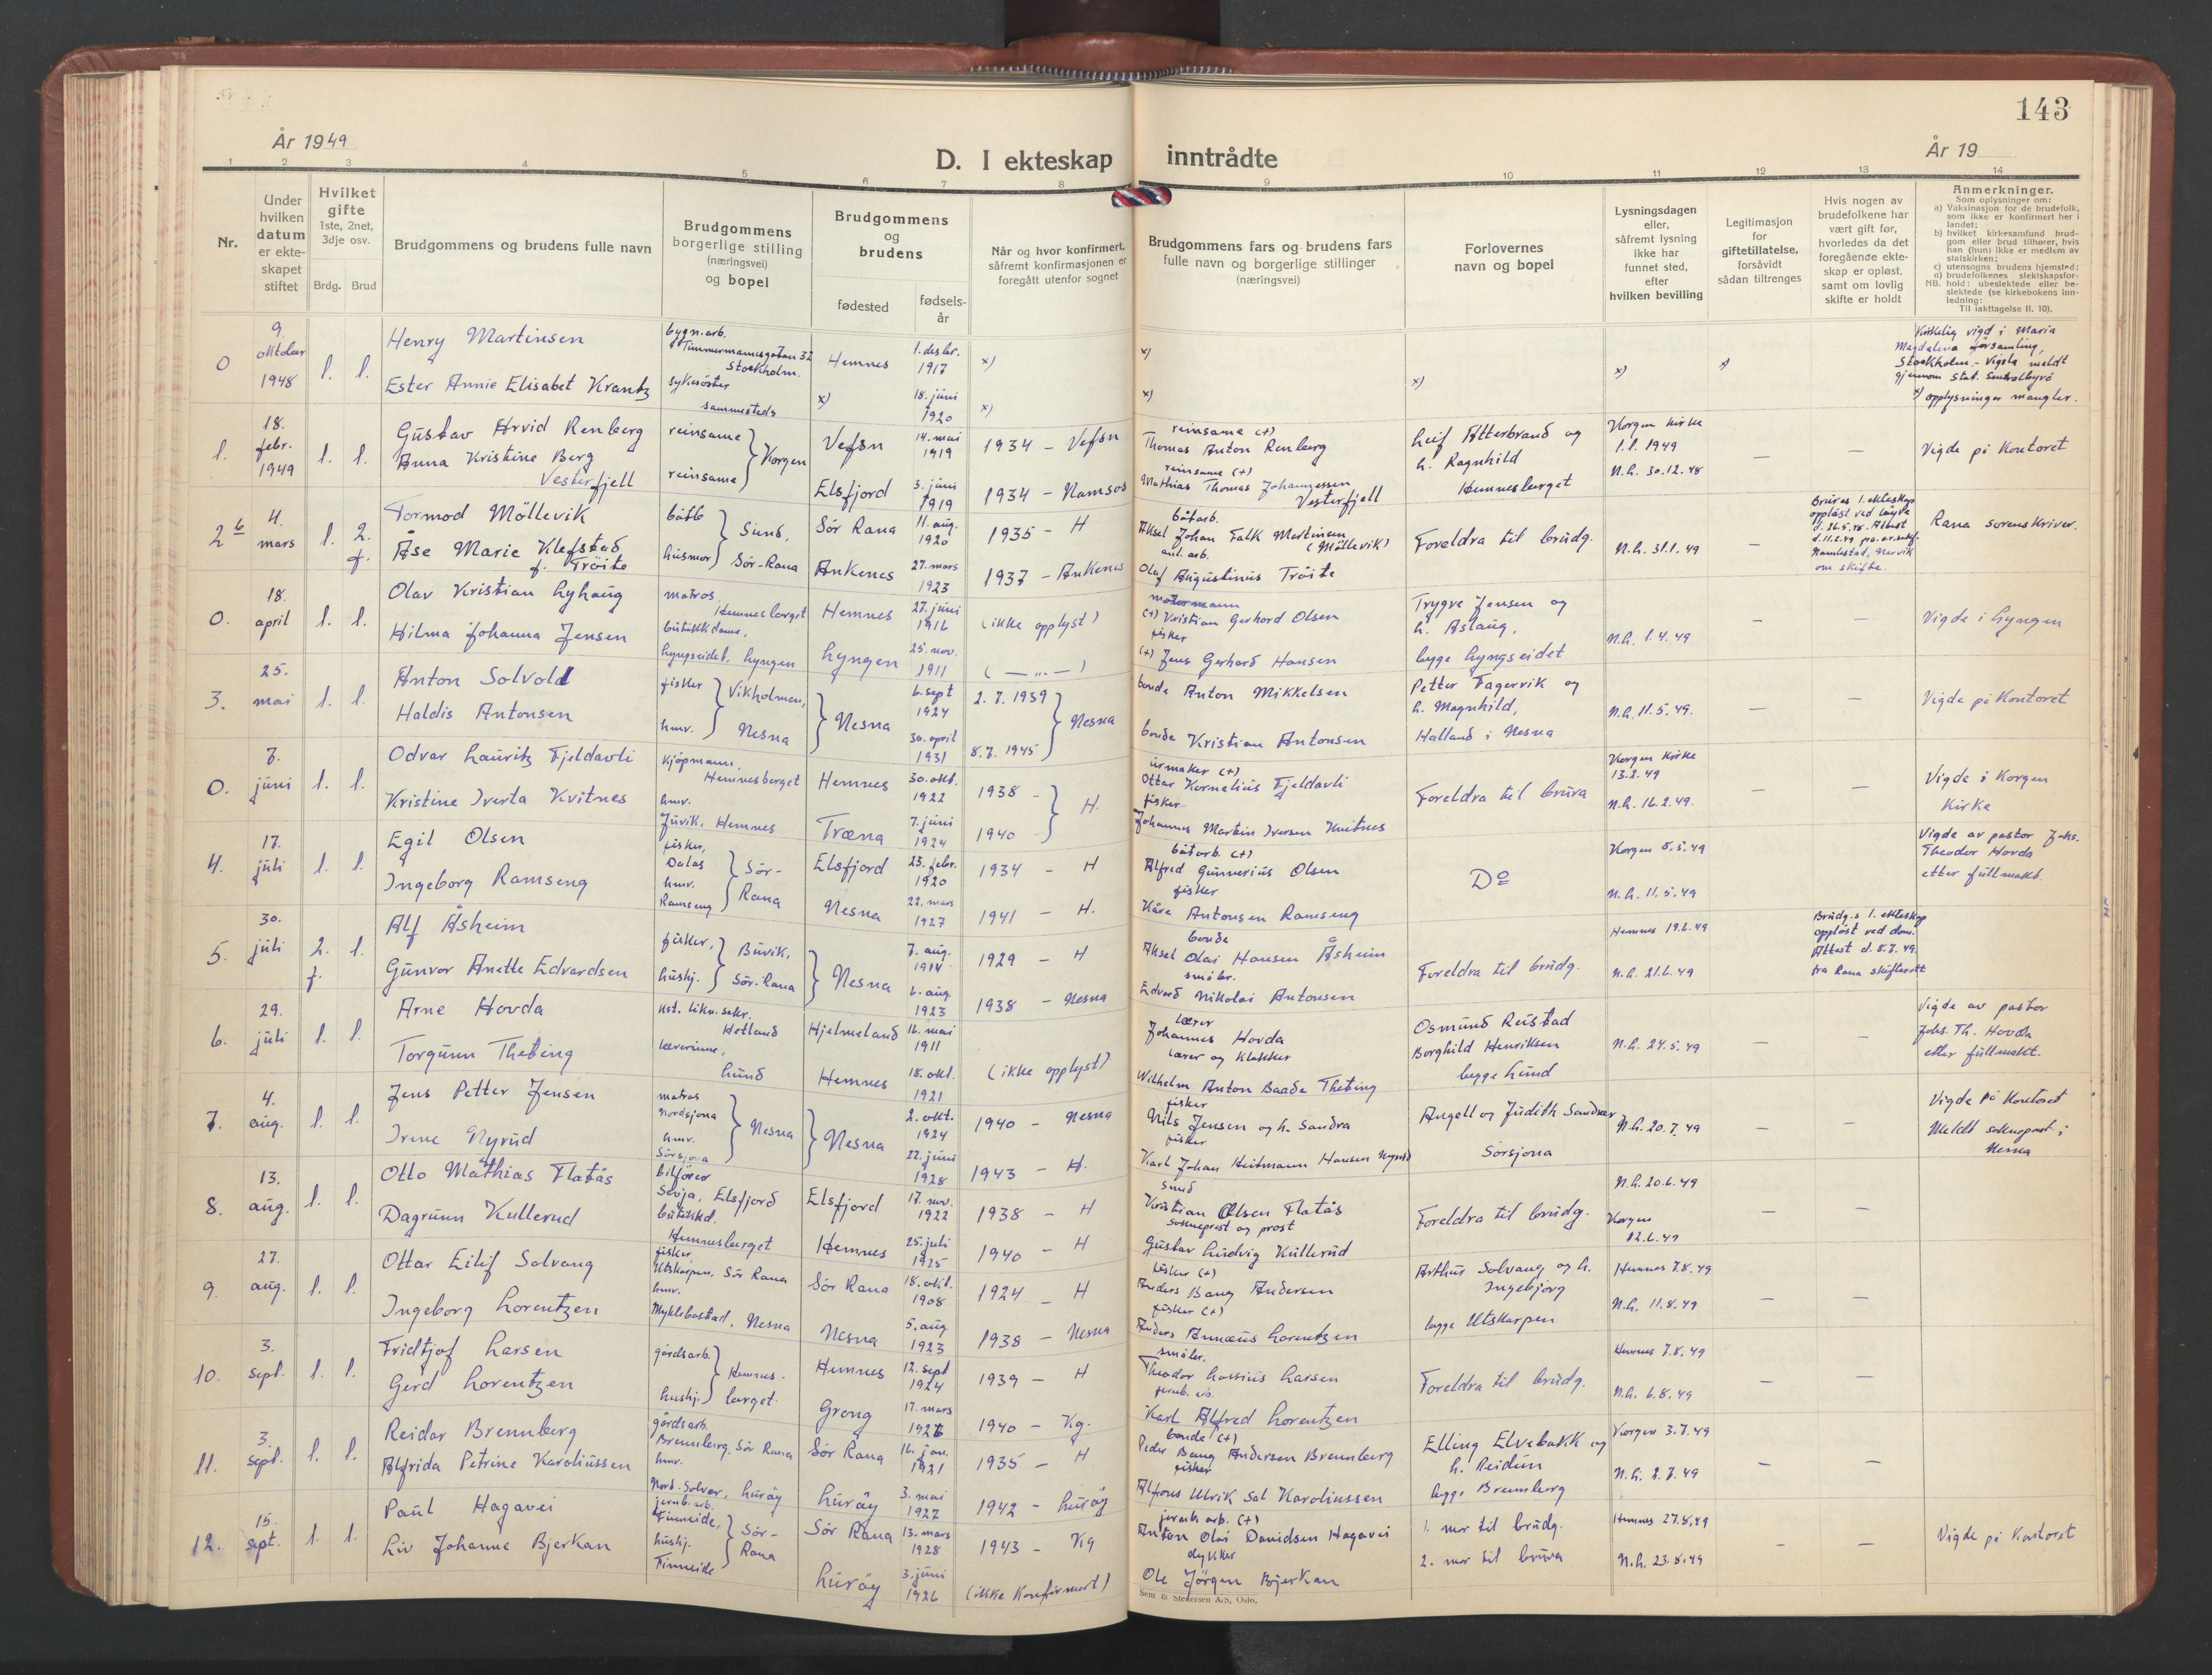 143
År 1949
D. I ekteskap inntrådte
År 19
1 2 3 4 5 6 7 8 9 10 11 12 13 14
Nr.
Under
hvilken
datum
er ekte-
skapet
stiftet
Hvilket
gifte
1ste, 2net,
3dje osv.
Brdg. Brud
Brudgommens og brudens fulle navn
Brudgommens
borgerlige stilling
(næringsvei)
og bopel
Brudgommens
og
brudens
fødested
fødsels-
år
Når og hvor konfirmert,
såfremt konfirmasjonen er
foregått utenfor sognet
Brudgommens fars og brudens fars
fulle navn og borgerlige stillinger
(næringsvei)
Forlovernes
navn og bopel
Lysningsdagen
eller,
såfremt lysning
ikke har
funnet sted,
efter
hvilken bevilling
Legitimasjon
for
giftetillatelse,
forsåvidt
sådan tiltrenges
Hvis nogen av
brudefolkene har
vært gift før,
hvorledes da det
foregående ekte-
skap er opløst,
samt om lovlig
skifte er holdt
Anmerkninger.
Som oplysninger om:
a) Vaksinasjon for de brudefolk,
som ikke er konfirmert her i
landet;
b) hvilket kirkesamfund brud-
gom eller brud tilhører, hvis
han (hun) ikke er medlem av
statskirken;
c) utensogns brudens hjemsted;
d) brudefolkenes slektskapsfor-
hold: ubeslektede eller be-
slektede (se kirkebokens inn-
ledning:
NB. Til iakttagelse II. 10).
0
9
oktober
1948
1. 1.
Henry Martinsen
Ester Annie Elisabet Krantz
bygn.arb.
Timmermansgatan 32
Stockholm.
sykesöster
sammesteds
Hemnes
x)
1. desbr.
1917
18. juni
1920
x)
x)
x)
x)
x)
x)
x)
Kirkelig vigd i Maria
Magdalena församling,
Stockholm - Vigsla meldt
gjennom Stat. Sentralbyrå
x) opplysninger mangler.
1.
18.
febr.
1949
1. 1.
Gustav Arvid Renberg
Anna Kristine Berg
Vesterfjell
reinsame
reinsame
Korgen
Vefsn
Elsfjord
14. mai
1919
3. juni
1919
1934 - Vefsn
1934 - Namsos
reinsame (+)
Thomas Anton Renberg
reinsame (+)
Mathias Thomas Johannessen
Vesterfjell
Leif Atterbrand og
h. Ragnhild
Hemnesberget
Korgen kirke
1.1.1949
N.h. 30.12.48
— —
Vigde på Kontoret
2 b
4.
mars
1. 2.
f.
Tormod Möllevik
Åse Marie Klefstad
f. Tröite
båtb
husmor
Sund,
Sör-Rana
Sör Rana
Ankenes
11. aug.
1920
27. mars
1923
1935 - H
1937 - Ankenes
båtarb.
Aksel Johan Falk Martinsen
(Möllevik)
anl. arb.
Olaf Augustinus Tröite
Foreldra til brudg.
N.h. 31.1.49
—
Bruras 1. ekteskap
opplöst ved löyve
d. 26.5.48. Attest
d. 11.2.49
Narvik
om skifte.
Rana sorenskriver.
0.
18.
april
1. 1.
Olav Kristian Lyhaug
Hilma Johanna Jensen
matros
Hemnesberget
butikkdame,
Lyngseidet, Lyngen
Hemnes
Lyngen
27. juni
1916
25. nov.
1911
(ikke opplyst)
( — „ — )
motormann
(+) Kristian Gerhard Olsen
fisker
(+) Jens Gerhard Hansen
Trygve Jensen og
h. Aslaug,
begge Lyngseidet
N.h. 1.4.49
— —
Vigde i Lyngen
3.
25.
mai
1. 1.
Anton Solvold
Haldis Antonsen
fisker
hmv.
Vikholmen,
Nesna
Nesna
6. sept
1924
30. april
1931
2.7.1939
8.7.1945
Nesna
bonde Anton Mikkelsen
bonde Kristian Antonsen
Petter Fagervik og
h. Magnhild,
Halland i Nesna
N.h. 11.5.49.
— —
Vigde på Kontoret
0.
7.
juni
1. 1.
Odvar Lauritz Fjeldavli
Kristine Iverta Kvitnes
kjöpmann,
Hemnesberget
hmv.
Juvik, Hemnes
Hemnes
Træna
30. okt.
1922
7. juni
1924
1938 -
1940
H.
urmaker (+)
Ottar Kornelius Fjeldavli
fisker
Johannes Martin Iversen Kvitnes
Foreldra til brura
Korgen Kirke
13.2.49
N.h. 16.2.49.
— —
Vigde i Korgen
Kirke
4.
17.
juli
1. 1.
Egil Olsen
Ingeborg Ramseng
fisker,
Dalas
hmv.
Ramseng
Sör-
Rana
Elsfjord
Nesna
23. febr.
1920
22. mars
1927
1934 - H
1941 - H.
båtarb. (+)
Alfred Gunnerius Olsen
fisker
Kåre Antonsen Ramseng
Do
Korgen 8.5.49
N.h. 11.5.49
Vigde av pastor Johs.
Theodor Hovda
etter fullmakt.
5.
30.
juli
2. 1.
f.
Alf Åsheim
Gunvor Anette Edvardsen
fisker,
hushj.
Buvik,
Sör-Rana
Nesna
7. aug.
1914
6. aug.
1923
1929 - H
1938 - Nesna
bonde
Aksel Olai Hansen Åsheim
småbr.
Edvard Nikolai Antonsen
Foreldra til brudg.
Hemnes 19.6.49
N.h. 21.6.49
Brudg.s 1. ekteskap
opplöst ved dom.
Attest d. 8.7.49.
fra Rana skifterett
6.
29.
juli
1. 1.
Arne Hovda
Torgunn Theting
ast. likn.sekr.
Hetland
lærerinne,
Lund
Hjelmeland
Hemnes
16. mai
1911
18. okt.
1921
(ikke opplyst)
lærer
Johannes Hovda
lærer og klokker
Wilhelm Anton Baade Theting
Osmund Reistad
Borghild Henriksen
begge Lund
N.h. 24.5.49
— —
Vigde av pastor
Johs. Th. Hovda
etter fullmakt.
7.
4.
aug.
1. 1.
Jens Petter Jensen
Irene Nyrud
matros
Nordsjona
hmv.
Sörsjona
Nesna
Nesna
2. okt.
1924
22. juni
1928
1940 - Nesna
1943 - H.
fisker
Nils Jensen og h. Sandra
fisker
Karl Johan Heitmann Hansen Nyrud
Angell og Judith Sandnes
Sörsjona
N.h. 20.7.49
— —
Vigde på Kontoret
Meldt sokneprest i
Nesna
8.
13.
aug.
1. 1.
Otto Mathias Flatås
Dagrunn Kullerud
bilförer
Sevja, Elsfjord
butikkd.
Hemnesberget
Elsfjord
Hemnes
17. nov.
1922
25. juli
1925
1938 - H
1940 - H
smed
Kristian Olsen Flatås
sokneprest og prost
Gustav Ludvig Kullerud
Foreldra til brudg.
N.h. 20.6.49
Korgen
12.6.49
— —
9.
27.
aug.
1. 1.
Ottar Eilif Solvang
Ingeborg Lorentzen
fisker
Utskarpen, Sör Rana
hmv.
Myklebostad, Nesna
Sör Rana
Nesna
18. okt.
1908
5. aug.
1923
1924 - H
1938 - Nesna
fisker (+)
Anders Bang Andersen
fisker (+)
Anders Annæus Lorentzen
Arthur Solvang og h.
Ingebjörg
begge Utskarpen
Hemnes 7.8.49
N.h. 11.8.49
— —
10.
3.
sept.
1. 1.
Fridtjof Larsen
Gerd Lorentzen
gårdsarb.
hushj.
Hemnes-
berget.
Hemnes
Grong
12. sept
1924
17. mars
1926
1939 - H
1940 - Kg.
småbr.
Theodor Lossius Larsen
jernb. arb.
Karl Alfred Lorentzen
Foreldra til brudg.
Hemnes 7.8.49
N.h. 6.8.49
— —
11.
3.
sept.
1. 1.
Reidar Brennberg
Alfrida Petrine Karoliussen
gårdsarb.
Brennberg, Sör Rana
hmv.
Nord-Solvær, Luröy
Sör Rana
Luröy
16. jan.
1921
3. mai
1927
1935 - H
1942 - Luröy
bonde (+)
Peder Bang Andersen Brennberg
fisker
Alfons Ulrik Sal Karoliussen
Elling Elvebakk og
h. Reidun
begge Brennberg
Korgen 3.7.49
N.h. 2.7.49
— —
12.
15.
sept.
1. 1.
Paul Hagavei
Liv Johanne Bjerkan
jernb. arb.
Finneide,
hushj.
Finneide
Sör-
Rana
Sör Rana
Luröy
13. mars
1928
3. juni
1926
1943 - Kg
(ikke konfirmert)
jernb. arb. (+)
Anton Olai Davidsen Hagavei
dykker
Ole Jörgen Bjerkan
1. mor til brudg.
2. mor til brura
Hemnes 27.8.49
N.h. 23.8.49
— —
Vigde på Kontoret
Sem & Stenersen A/S, Oslo.